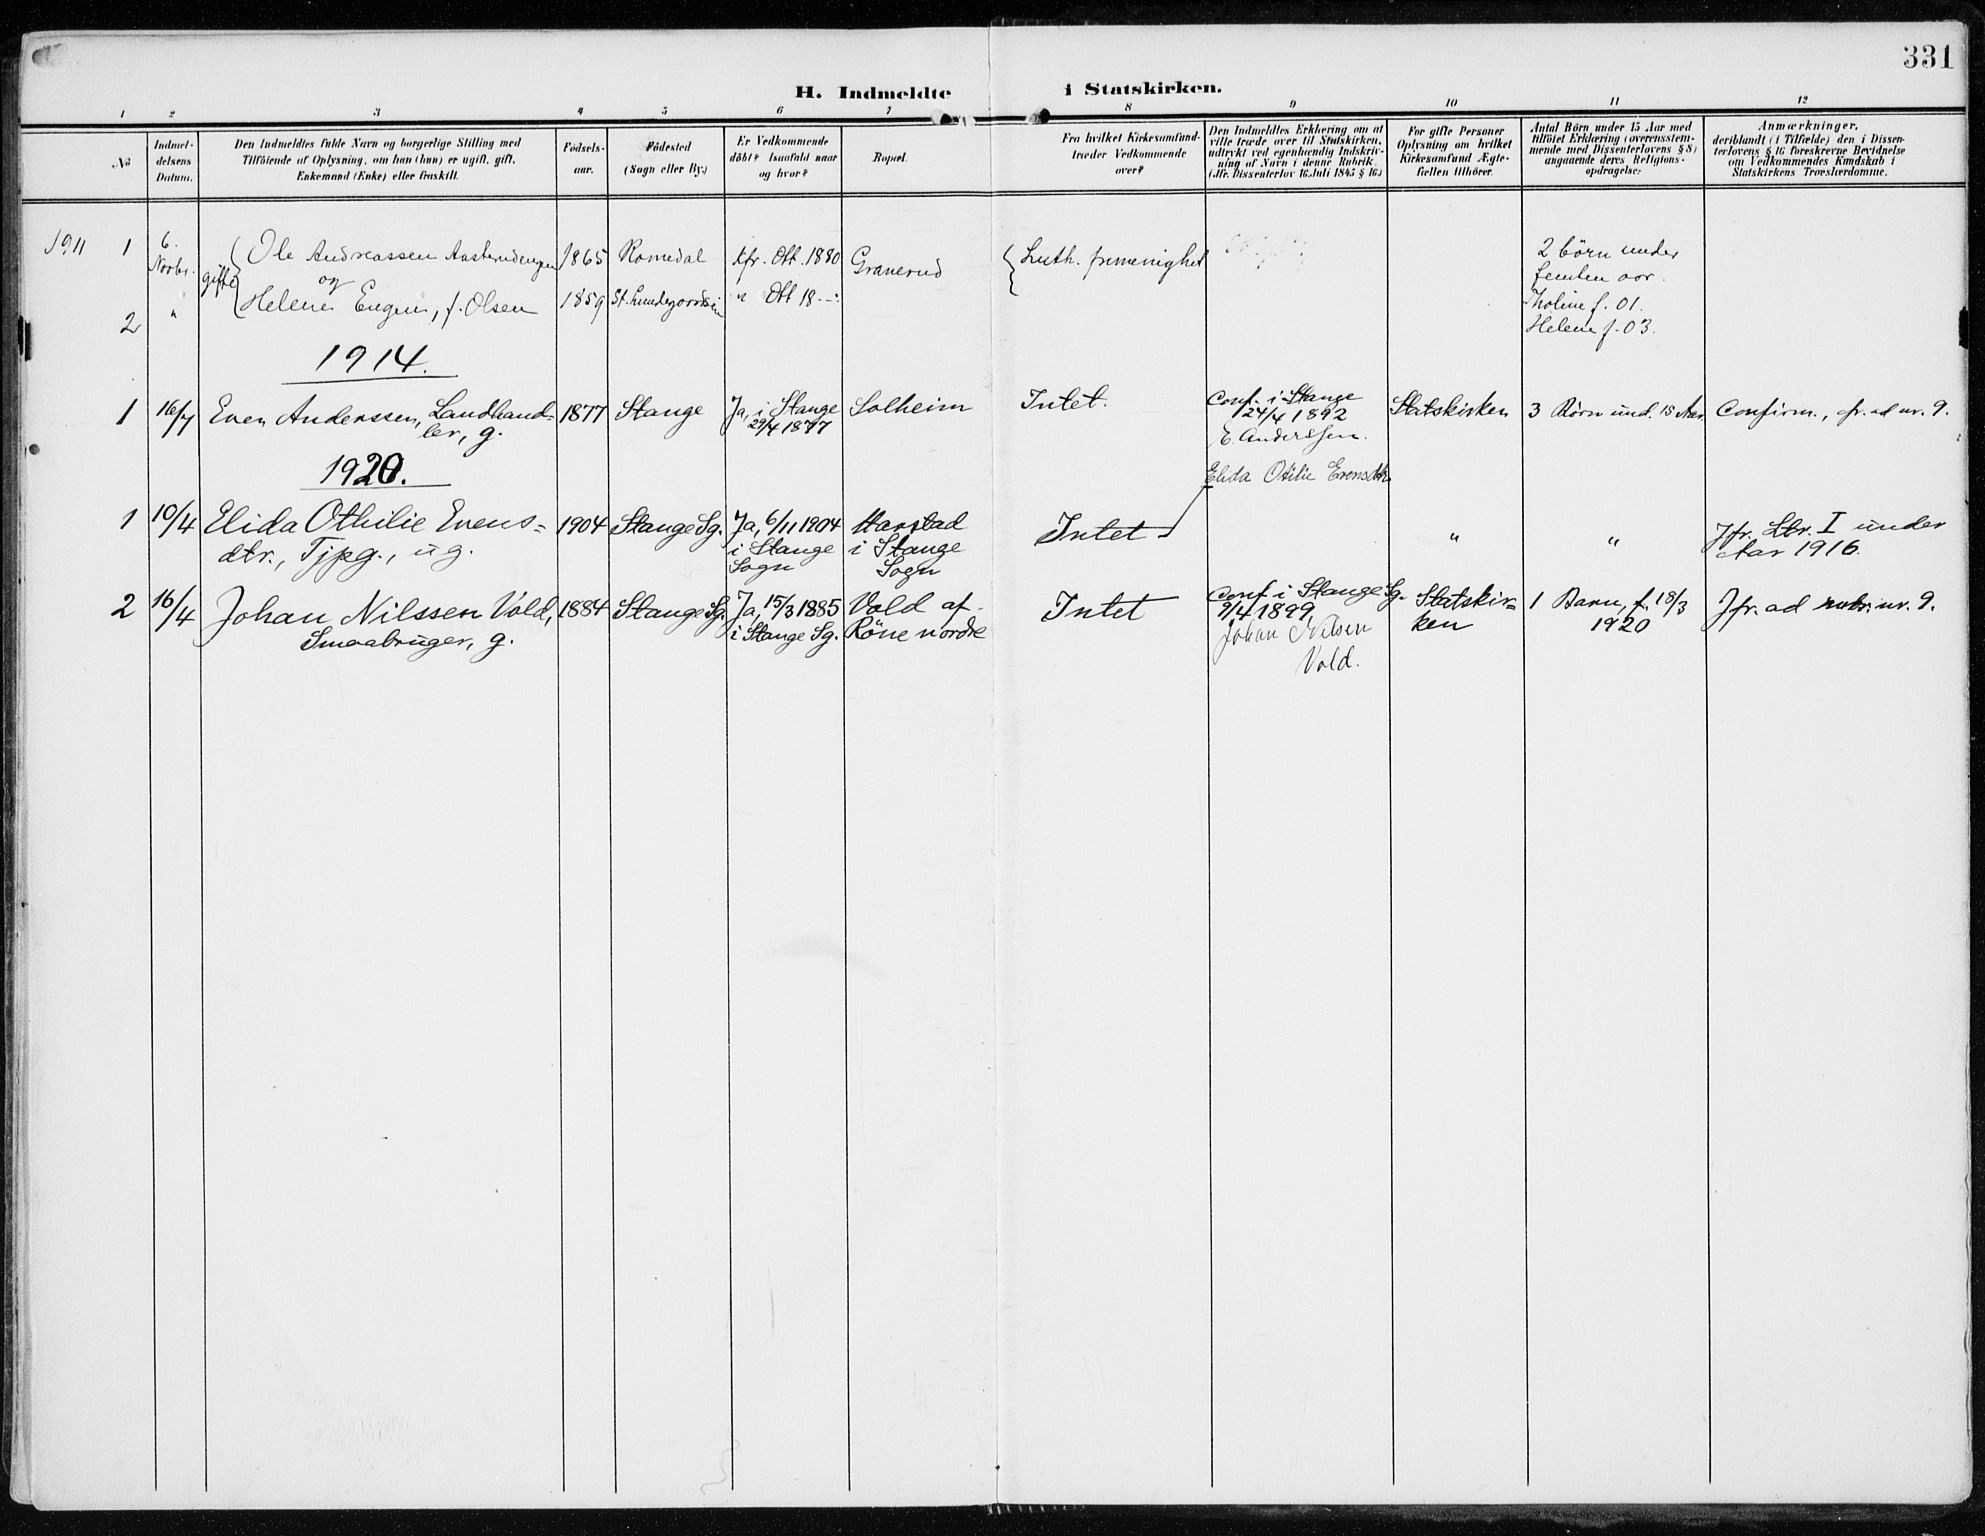 331
H. Indmeldte i Statskirken.
1 2 3 4 5 6 7 8 9 10 11 12
No
Indmel-
delsens
Datum.
Den Indmeldtes fulde Navn og borgerlige Stilling med
Tilföiende af Oplysning, om han (hun) er ugift, gift,
Enkemand (Enke) eller fraskilt.
Födsels-
aar.
Födested
(Sogn eller By.)
Er Vedkommende
döbt? Isaafald naar
og hvor?
Bopæl.
Fra hvilket Kirkesamfund
træder Vedkommende
over?
Den Indmeldtes Erklæring om at
ville træde over til Statskirken,
udtrykt ved egenhændig Indskriv-
ning af Navn i denne Rubrik.
(Jfr. Dissenterlov 16 Juli 1845 § 16.)
For gifte Personer
Oplysning om hvilket
Kirkesamfund Ægte-
fællen tilhörer.
Antal Börn under 15 Aar med
tilföiet Erklæring (overensstem-
mende med Dissenterlovens § 8)
angaaende deres Religions-
opdragelse:
Anmærkninger,
deriblandt (i Tilfælde) den i Dissen-
terlovens § 16 foreskrevne Bevidnelse
om Vedkommendes Kundskab i
Statskirkens Troeslærdomme.
1911 1 6. Novbr. gifte Ole Andreassen 1865 Romedal kfr. Ott. 1880 Granerud Luth. frimenighet 2 börn under
og femten aar.
2 " Helene Engen, f. Olsen 1859 " Ott 18-- Tholine f. 01.
Helene f. 03.
1914.
1 16/7 Even Anderssen, Landhand- 1877 Stange Ja, i Stange Solheim Intet. Conf. i Stange Statskirken 3 Börn und. 15 Aar. Confirm., fr. ad nr. 9.
ler, g. 29/4 1877 24/4 1892
E. Anderssen.
1920.
Elida Otilie Evensdtr.
1 10/4 Elida Othilie Evens- 1904 Stange Sg. Ja, 6/11 1904 Harstad Intet " " Jfr. Ltr. I under
dtr., Tjpg., ug. i Stange i Stange Aar 1916.
Sogn Sogn
2 16/4 Johan Nilssen Vold, 1884 Stange Sg. Ja, 15/3 1885 Vold af Intet Conf i Stange Sg. Statskir- 1 Barn, f. 18/3 Jfr. ad rubr. nr. 9.
Smaabruger, g. i Stange Sg. Röne nordre 9/4 1899, ken 1920
Johan Nilsen
Vold.